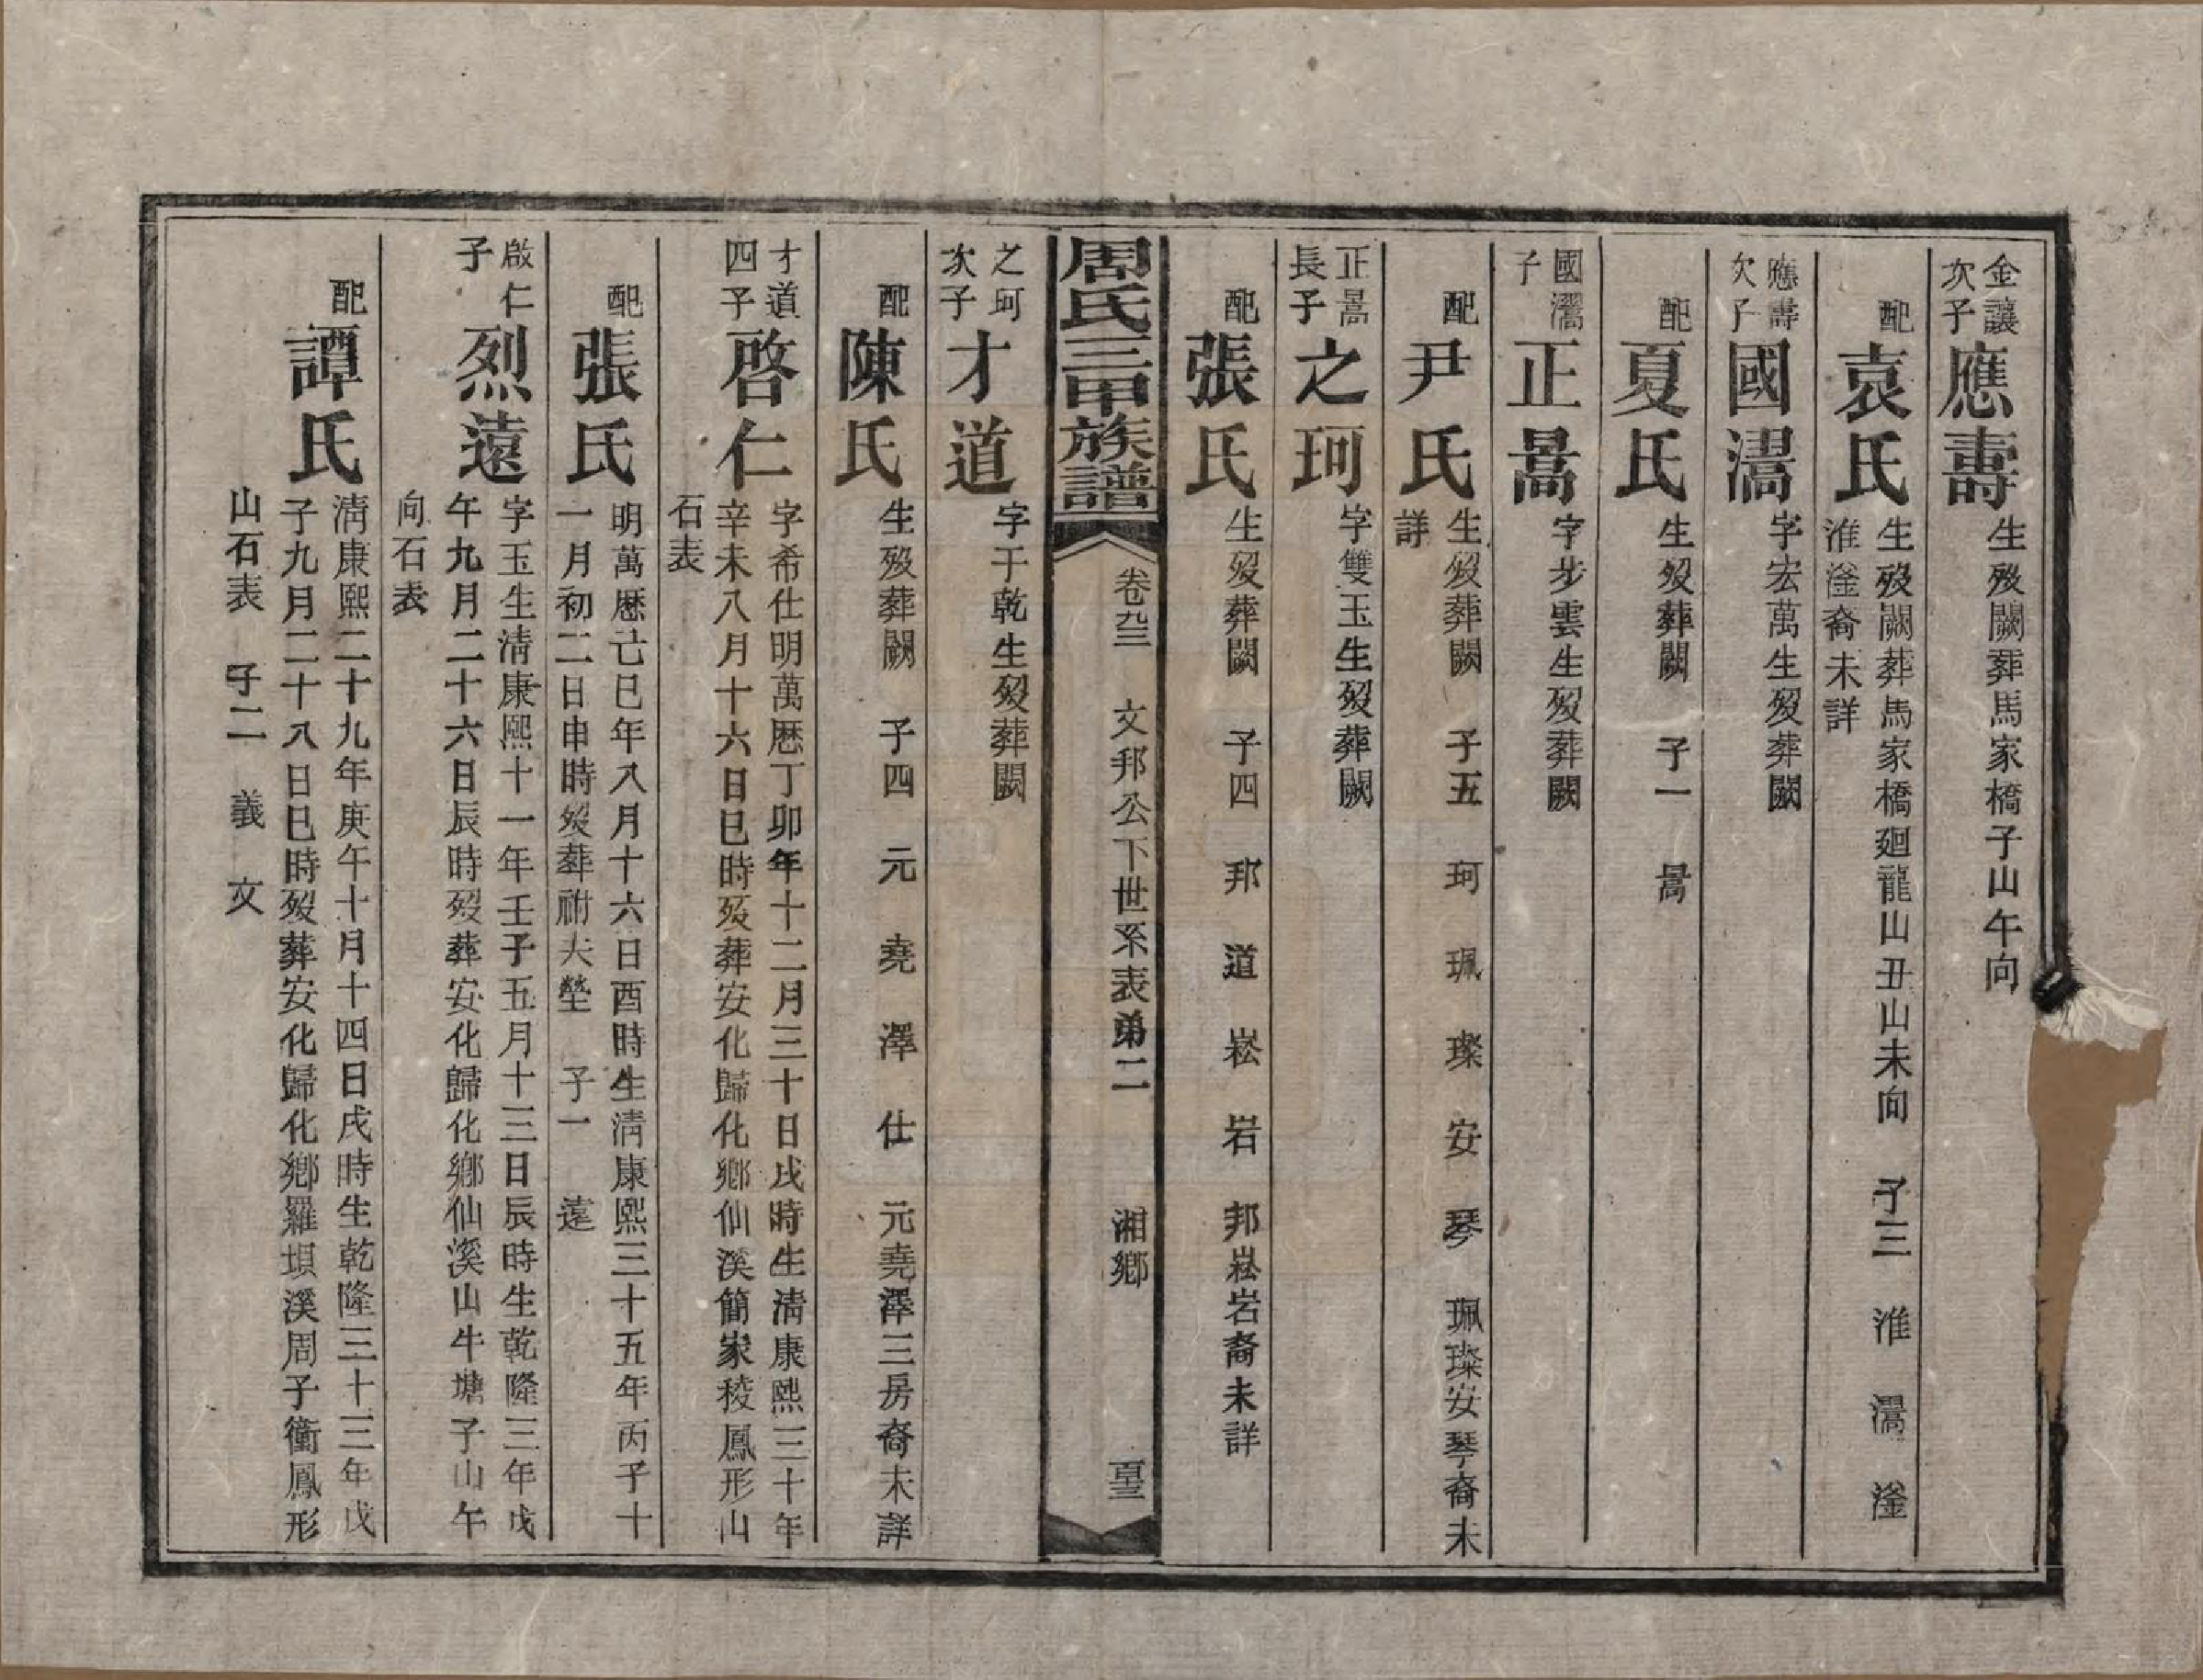 金讓次子
應壽
生歿闕葬馬家橋子山午向
配
袁氏
生歿闕葬馬家橋廻龍山丑山未向 子三 淮 濐 滏
淮滏裔未詳
應壽次子
國濐
字宏萬生歿葬闕
配
夏氏
生歿葬闕 子一 暠
國濐子
正暠
字步雲生歿葬闕
配
尹氏
生歿葬闕 子五 珂 珮 璨 安 琴 珮璨安琴裔未
詳
正暠長子
之珂
字雙玉生歿葬闕
配
張氏
生歿葬闕 子四 邦 道 崧 岩 邦崧岩裔未詳
周氏三甲族譜
卷九三 文邦公下世系表弟二 湘鄉
之珂次子
才道
字于乾生歿葬闕
配
陳氏
生歿葬闕 子四 元 堯 澤 仕 元堯澤三房裔未詳
才道四子
啓仁
字希仕明萬歷丁卯年十二月三十日戌時生淸康熙三十年
辛未八月十六日巳時歿葬安化歸化鄉仙溪簡家稜鳳形山
石表
配
張氏
明萬歷己巳年八月十六日酉時生淸康熙三十五年丙子十
一月初二日申時歿葬祔夫塋 子一 遠
啟仁子
烈遠
字玉生淸康熙十一年壬子五月十三日辰時生乾隆三年戊
午九月二十六日辰時歿葬安化歸化鄉仙溪山牛塘子山午
向石表
配
譚氏
淸康熙二十九年庚午十月十四日戌時生乾隆三十三年戊
子九月二十八日巳時歿葬安化歸化鄉羅壩溪周子衝鳳形
山石表 子二 義 文